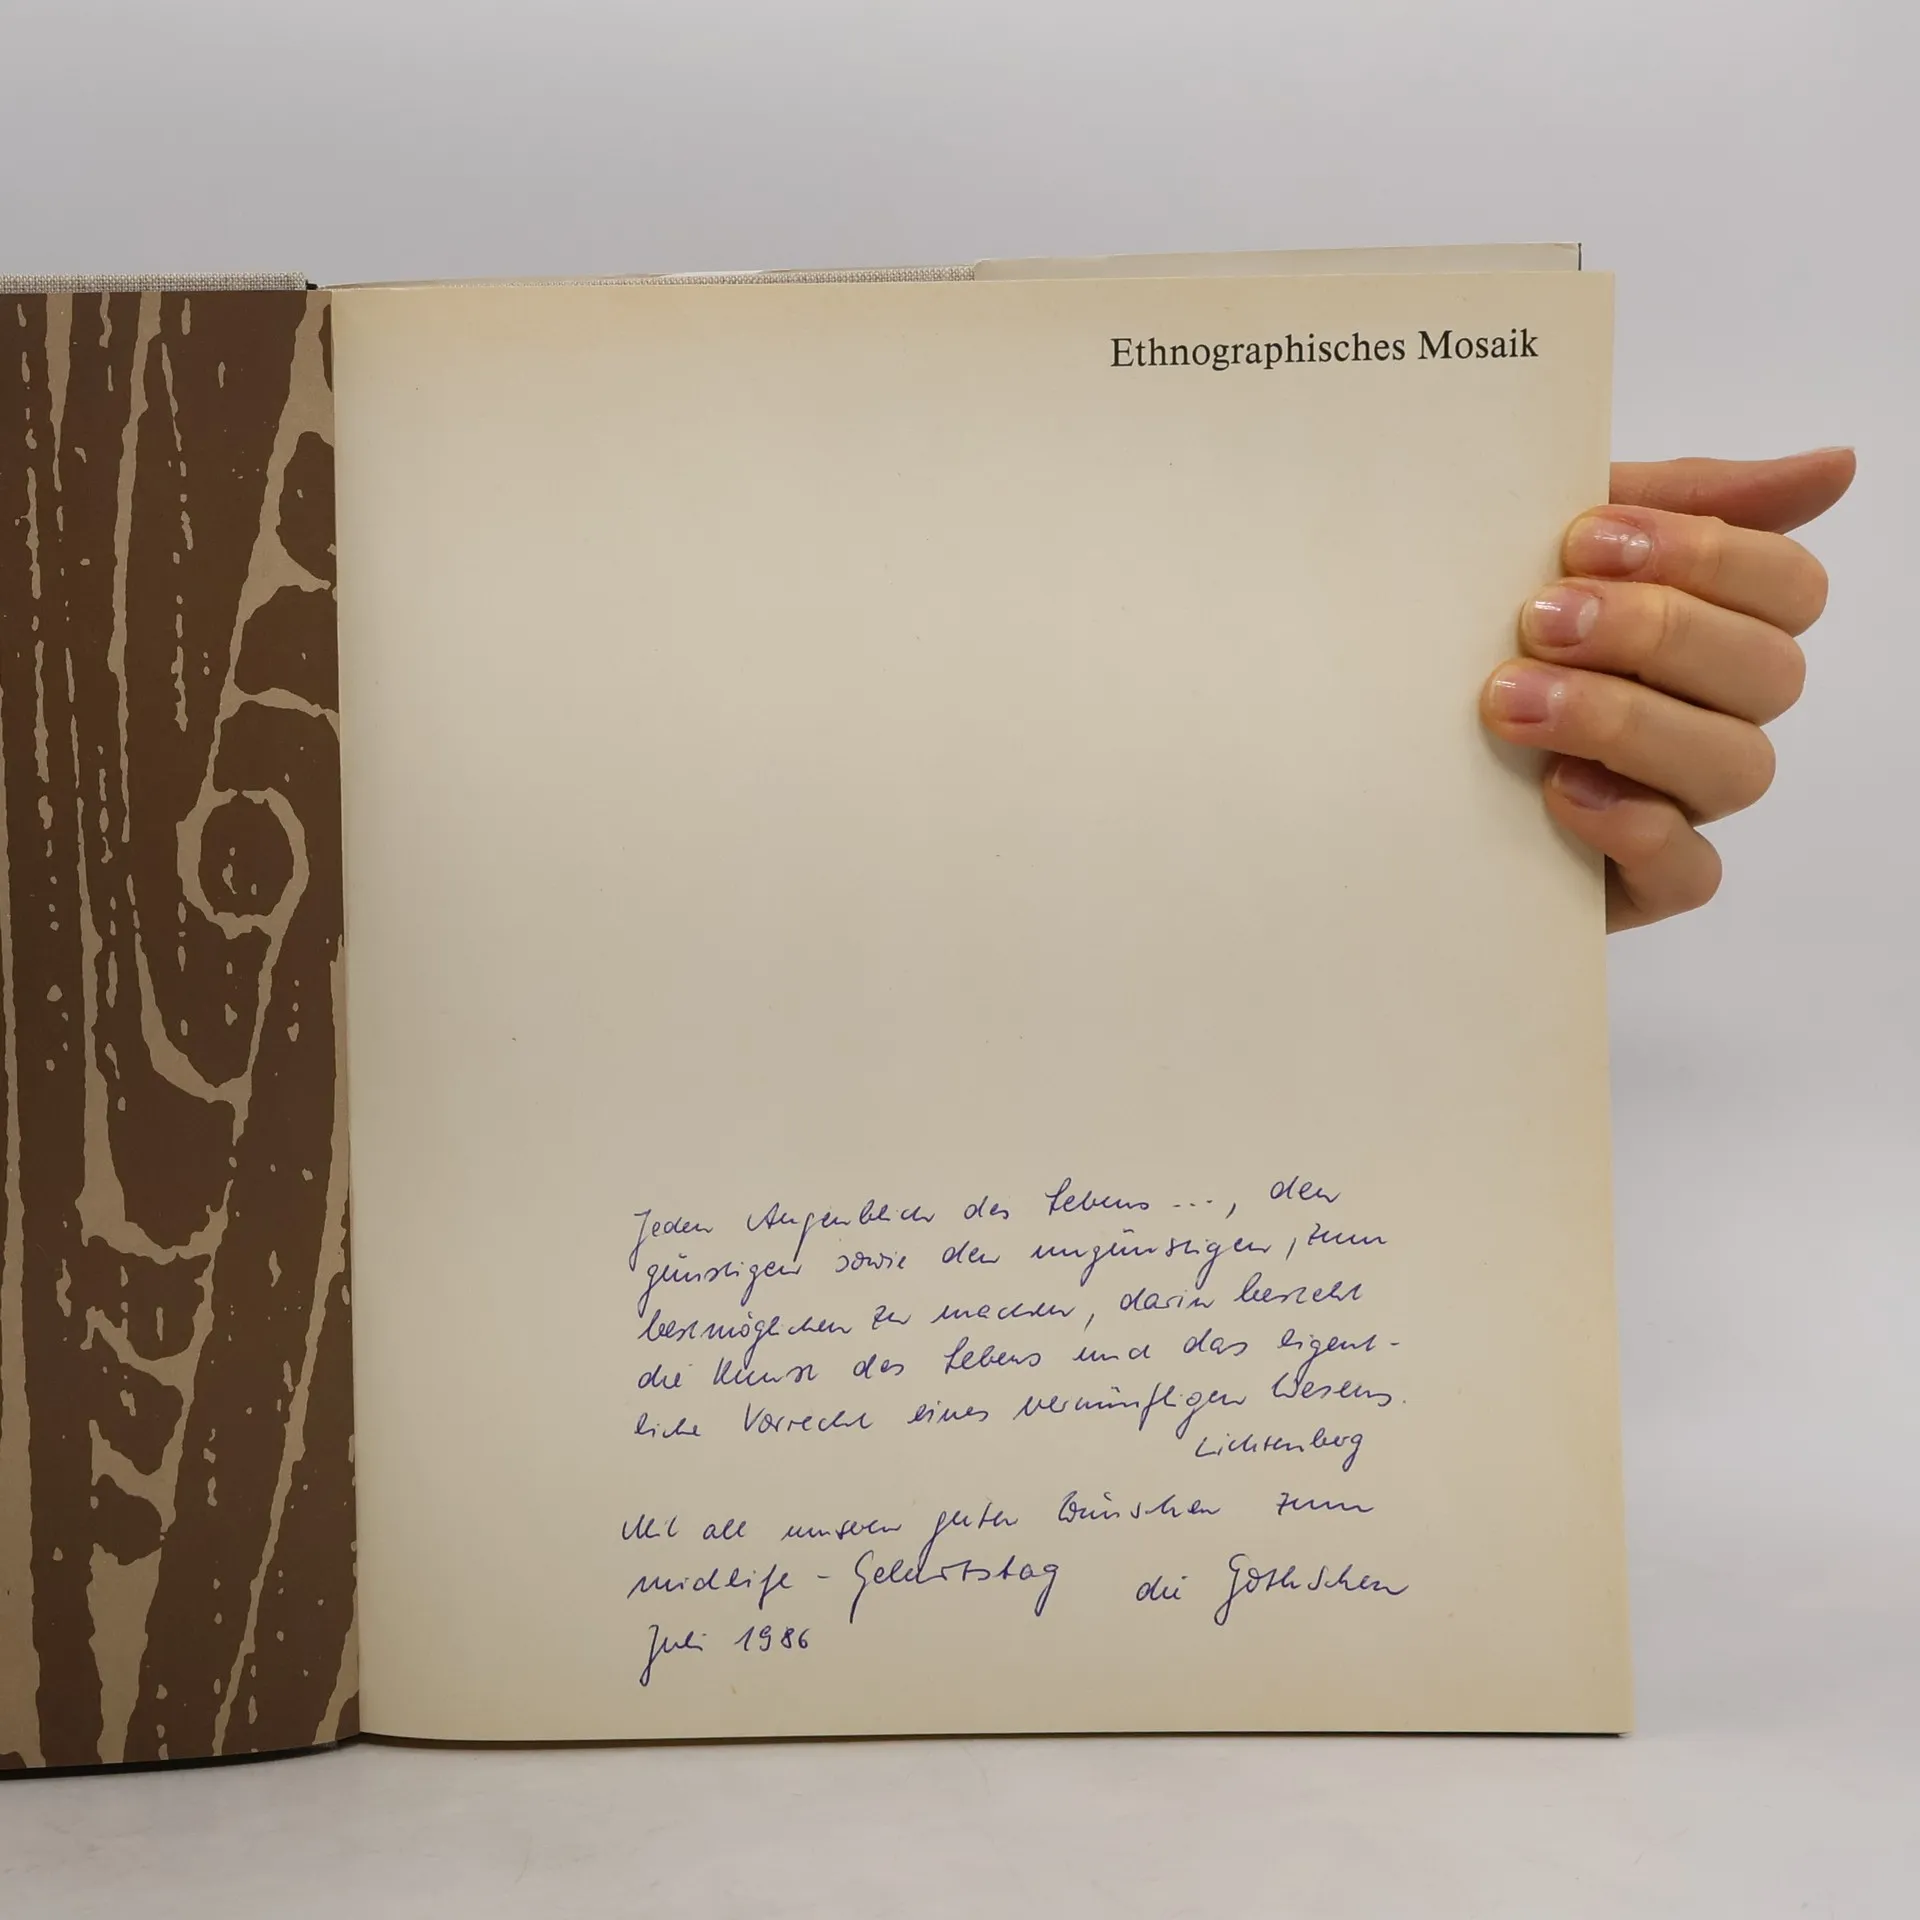 Ethnographisches Mosaik
Jeden Augenblick des Lebens ..., den
günstigen sowie den ungünstigen, zum
bestmöglichen zu machen, darin besteht
die Kunst des Lebens und das eigent-
liche Vorrecht eines vernünftigen Wesens.
Lichtenberg
Mit all unseren guten Wünschen zum
midlife - Geburtstag die
Juli 1986